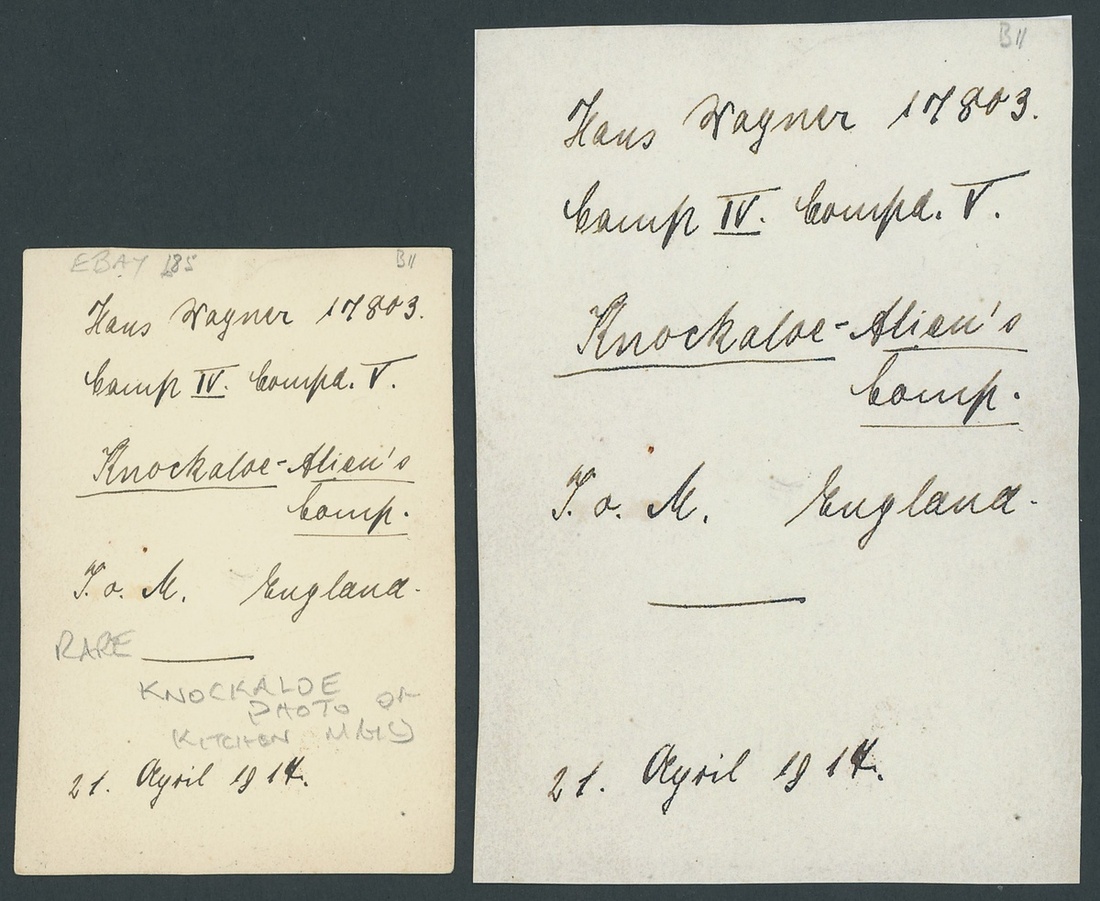 EBAY £85
B11
Hans Wagner 17803.
Camp IV. Compd. V.
Knockaloe-Alien's
Camp.
I. o. M. England.
RARE
KNOCKALOE
PHOTO OF
KITCHEN
21. April 1917.
B11
Hans Wagner 17803.
Camp IV. Compd. V.
Knockaloe-Alien's
Camp.
I. o. M. England.
21. April 1917.